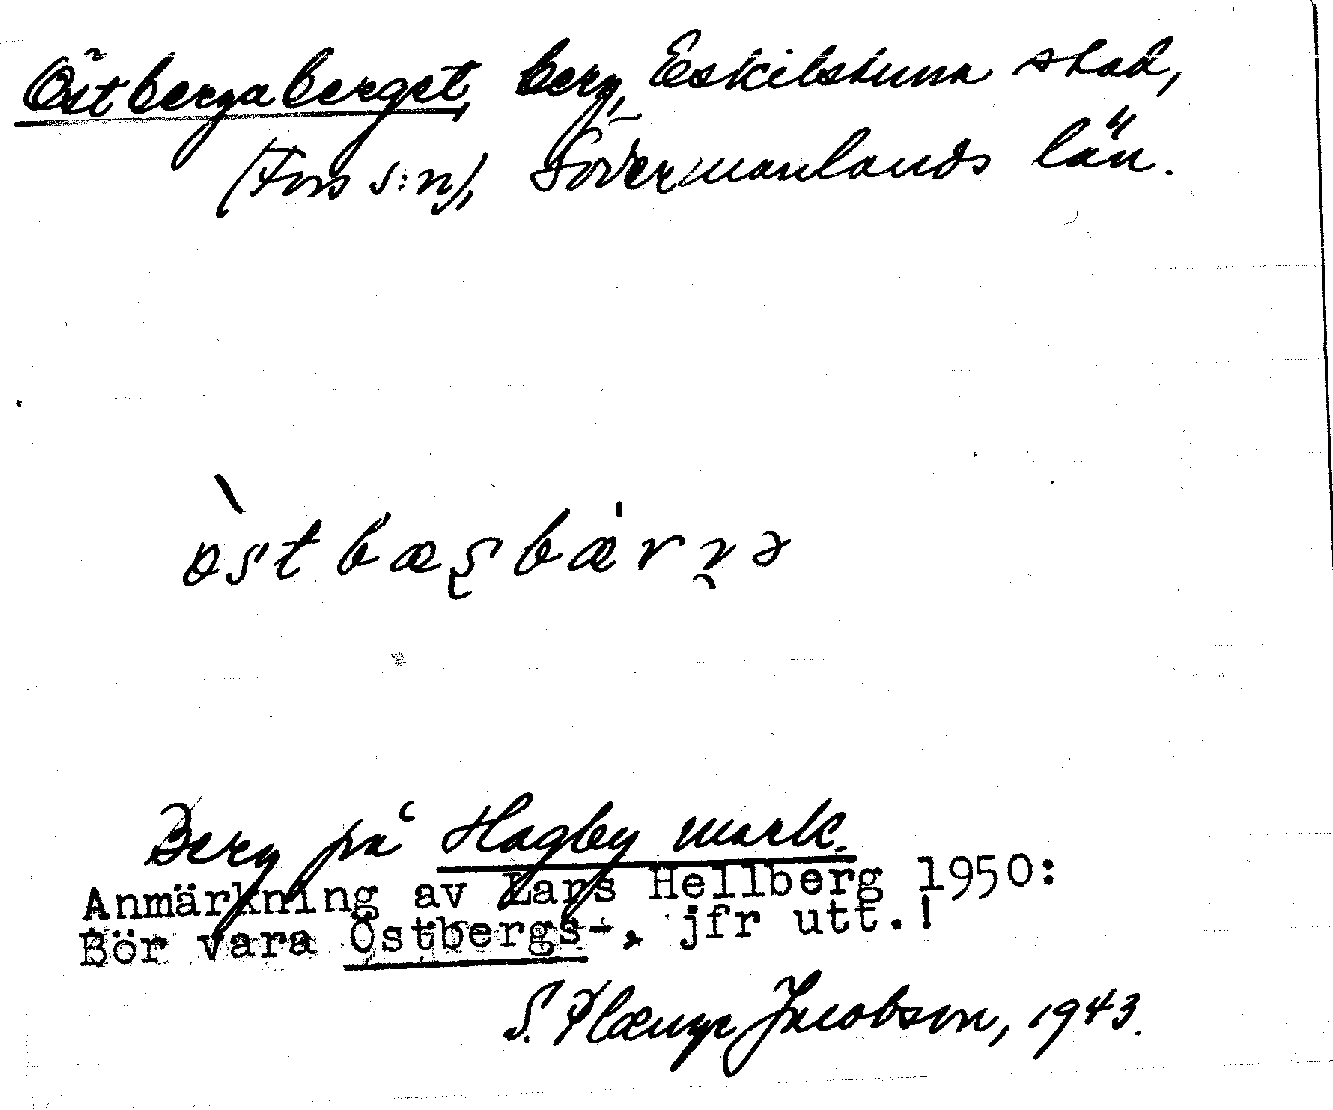 Östbergaberget, berg, Eskilstuna stad,
(Fors s:n), Södermanlands län.
Berg på Hagby mark.
Anmärkning av Lars Hellberg 1950:
Bör vara Östbergs-, jfr utt.!
S. Plænge Jacobson, 1943.